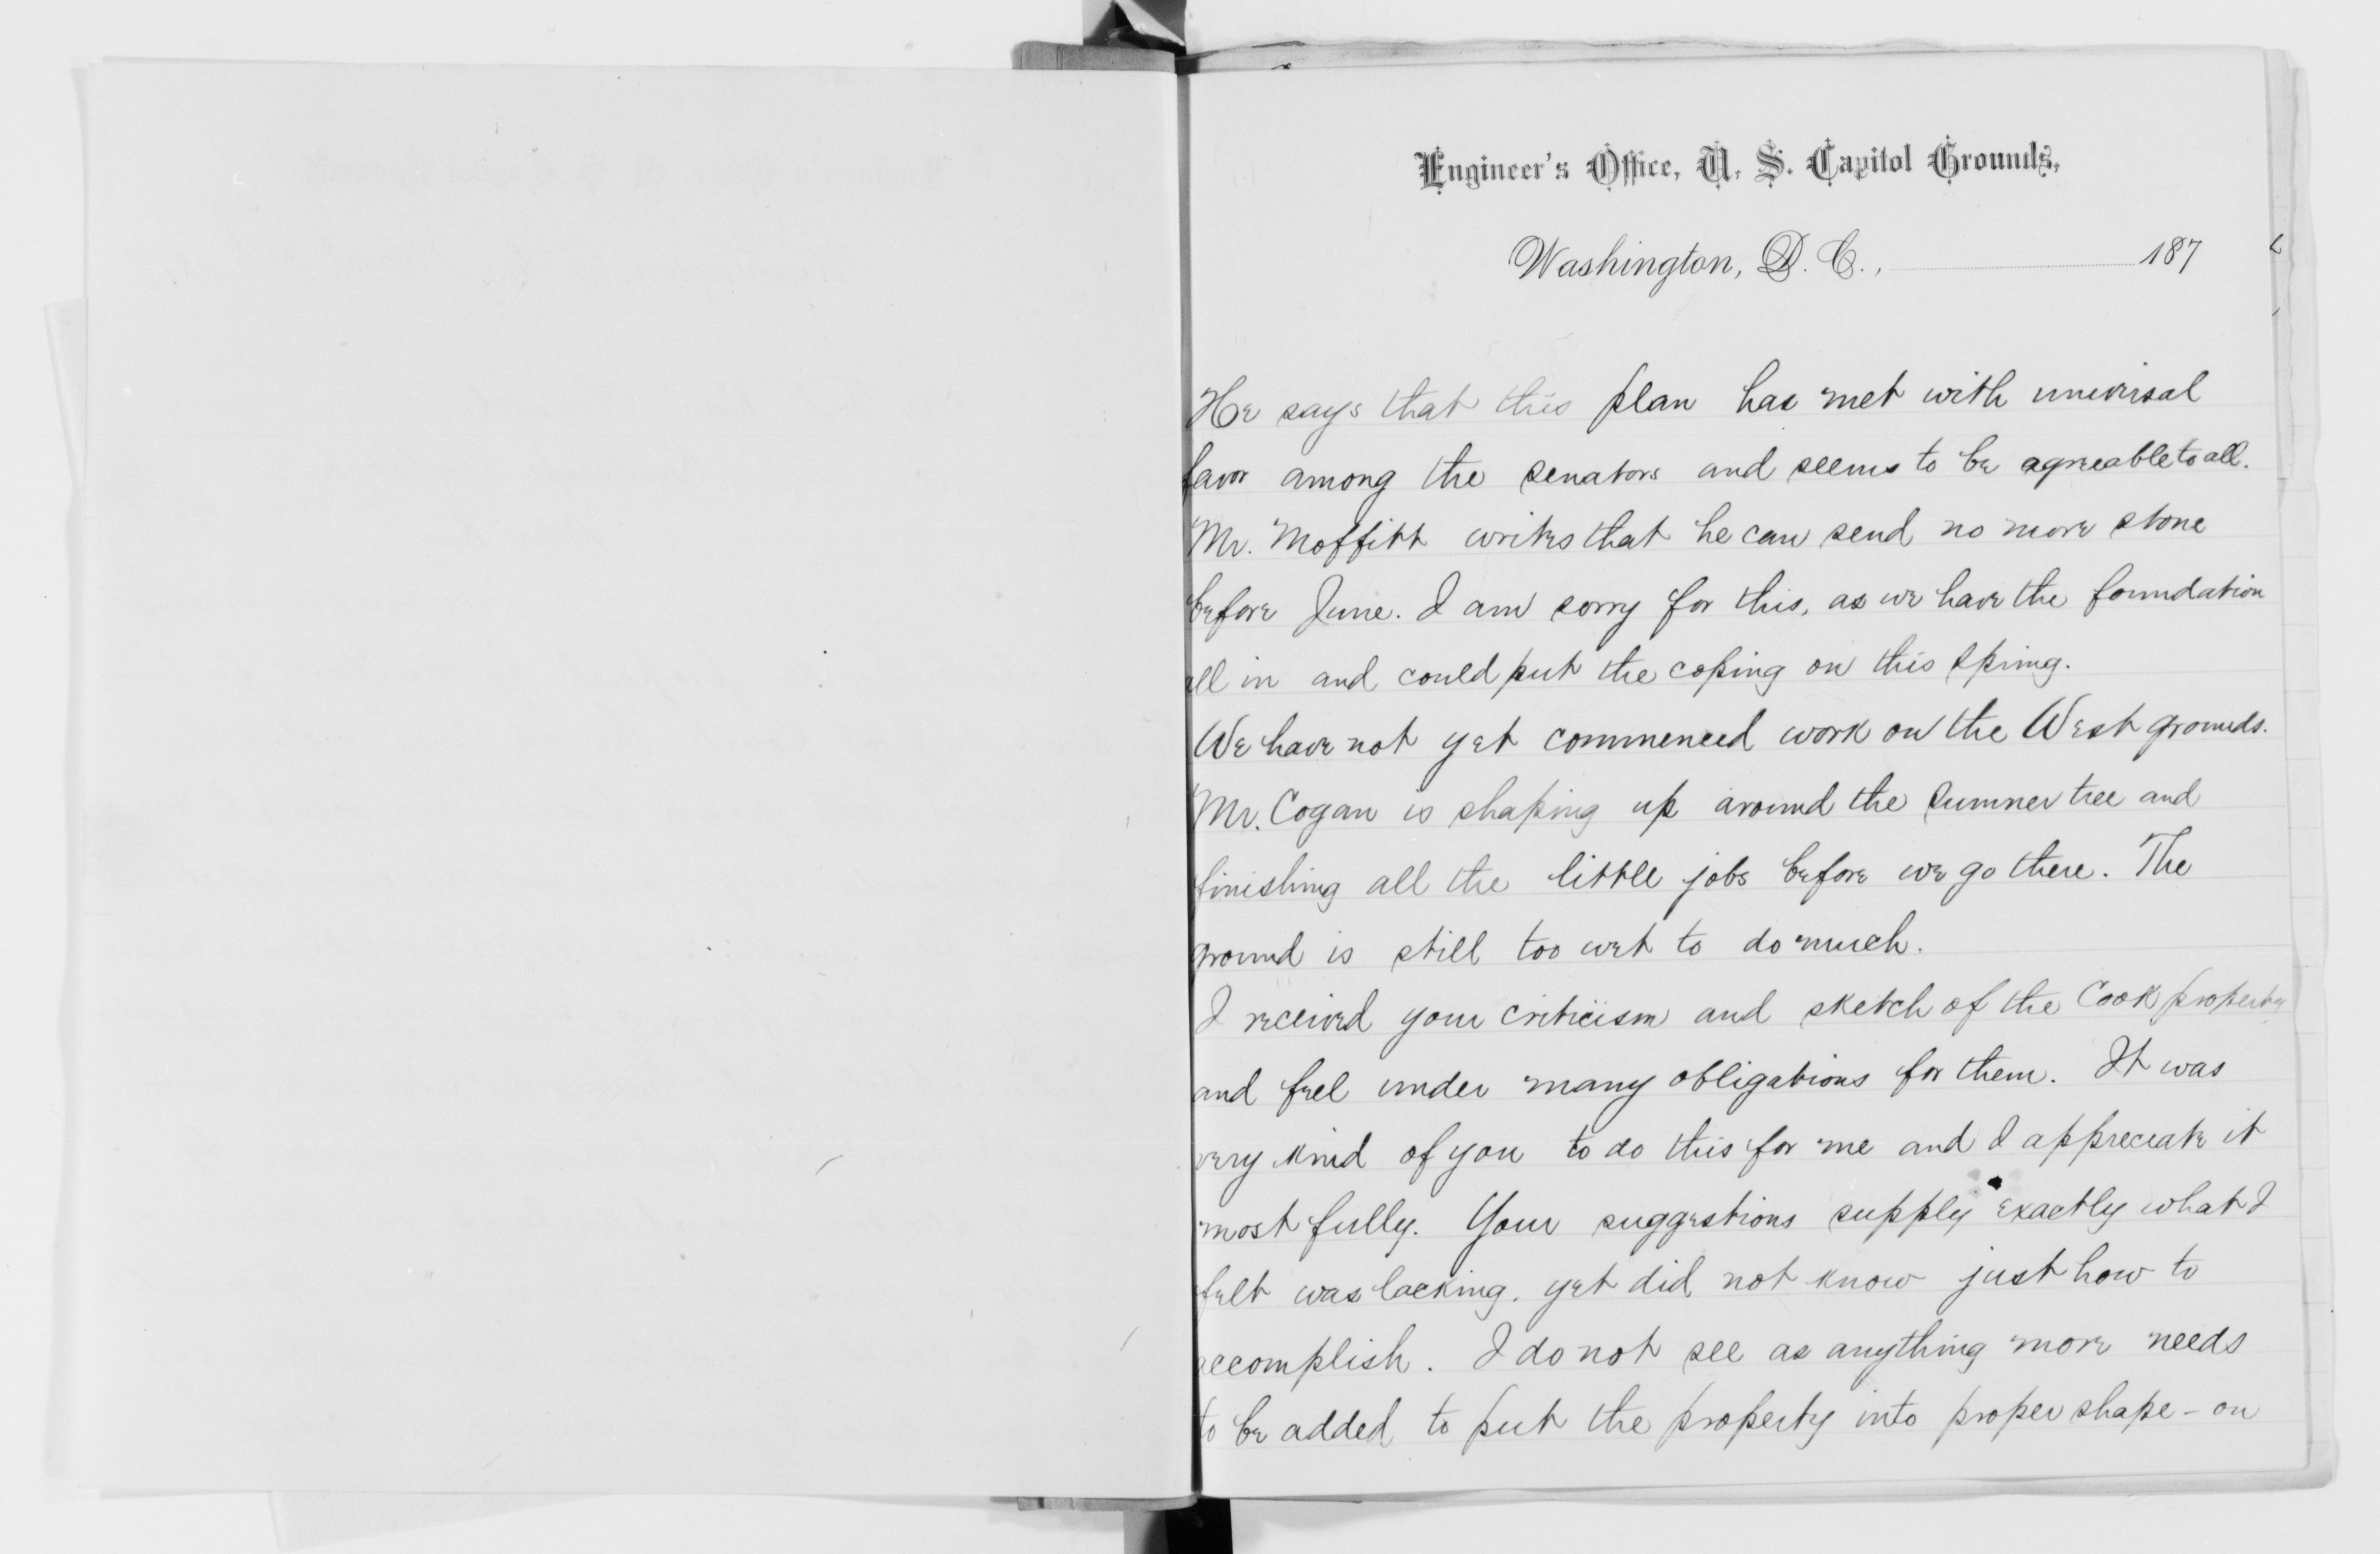 Engineer's Office, U. S. Capitol Grounds,
Washington, D. C., 187
He says that this plan has met with universal
favor among the senators and seems to be agreeable to all.
Mr. Moffitt writes that he can send no more stone
before June. I am sorry for this, as we have the foundation
all in and could put the coping on this spring.
We have not yet commenced work on the West grounds.
Mr. Cogan is shaping up around the Sumner tree and
finishing all the little jobs before we go there. The
ground is still too wet to do much.
I received your criticism and sketch of the Cook property
and feel under many obligations for them. It was
very kind of you to do this for me and I appreciate it
most fully. Your suggestions supply exactly what I
felt was lacking, yet did not know just how to
accomplish. I do not see as anything more needs
to be added to put the property into proper shape - on